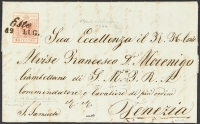 Este
19 LUG.
Sua Eccellenza il
Alvise Francesco D. Mocenigo
Ciambellano di S. M. I. R. A.
Commendatore e Cavaliere di più ordini
Venezia